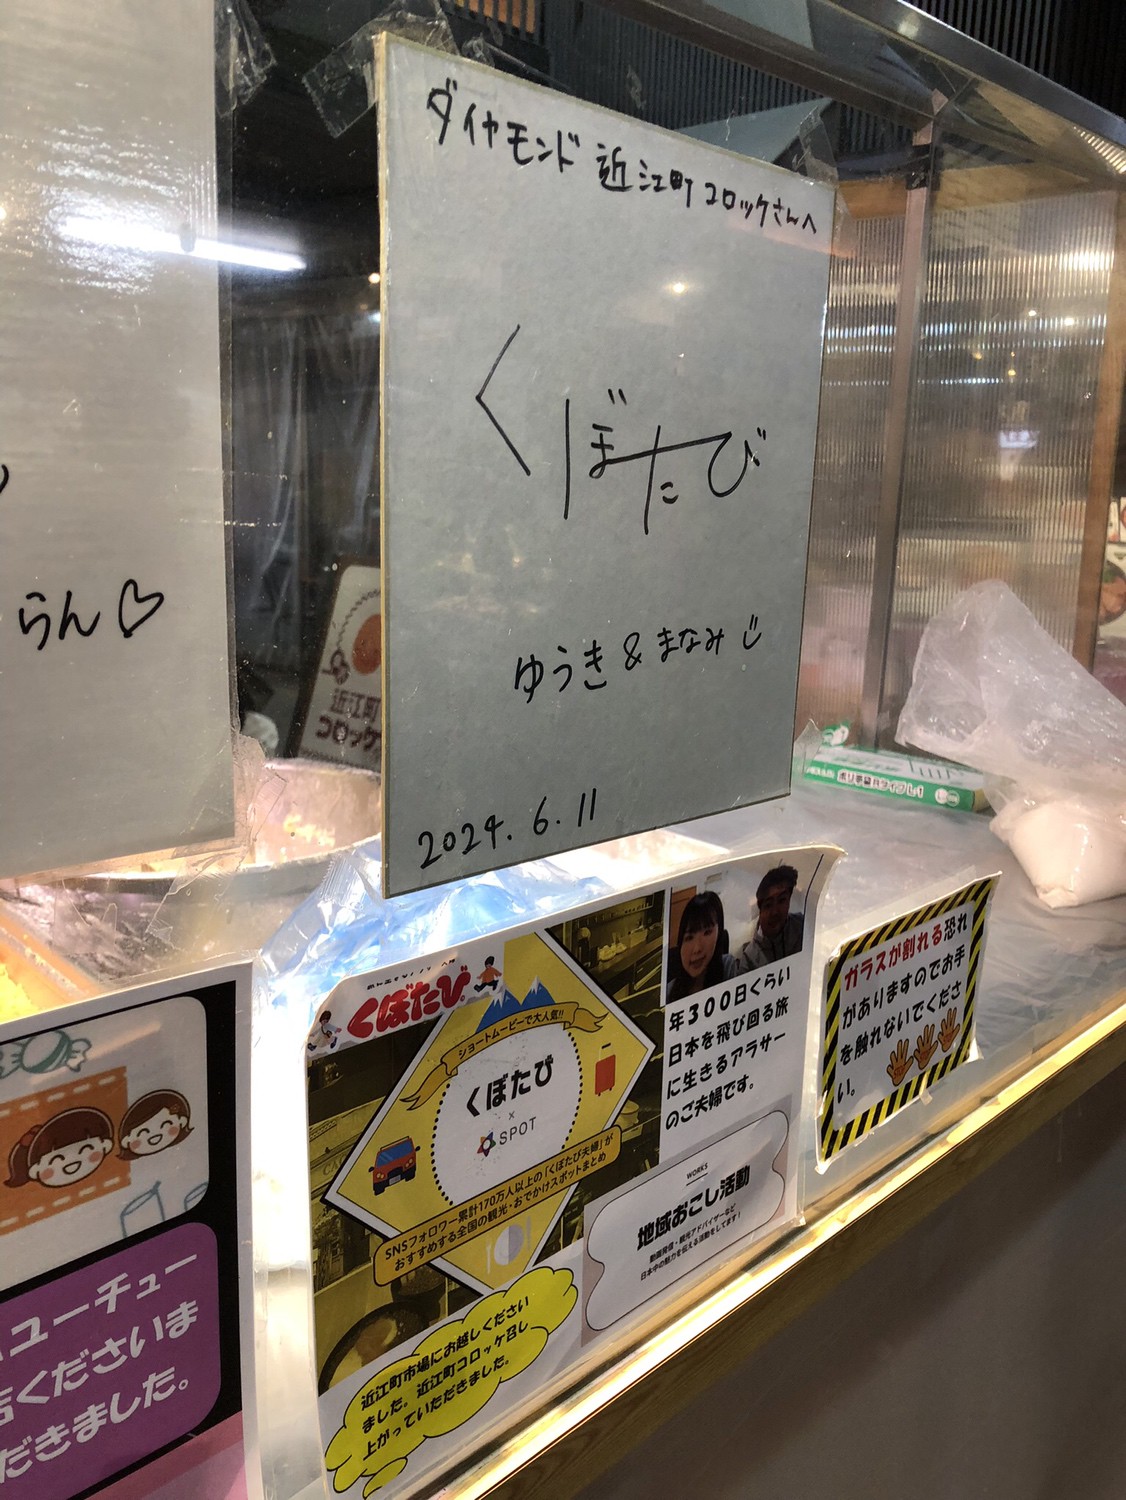 ダイヤモンド 近江町コロッケさんへ
くぼたび
ゆうき&まなみ
2024.6.11
らん♡
近江町
コロッケ
ポリ手袋
くぼたび
ショートムービーで大人気!!
くぼたび
×
SPOT
SNSフォロワー累計170万人以上の「くぼたび夫婦」が
おすすめする全国の観光・おでかけスポットまとめ
年300日くらい
日本を飛び回る旅
に生きるアラサー
のご夫婦です。
WORKS
地域おこし活動
動画発信・観光アドバイザーなど
日本中の魅力を伝える活動をしてます!
近江町市場にお越しください
ました。近江町コロッケ召し
上がっていただきました。
ガラスが割れる恐れ
がありますのでお手
を触れないでくださ
い。
ユーチュー
くださいま
だきました。